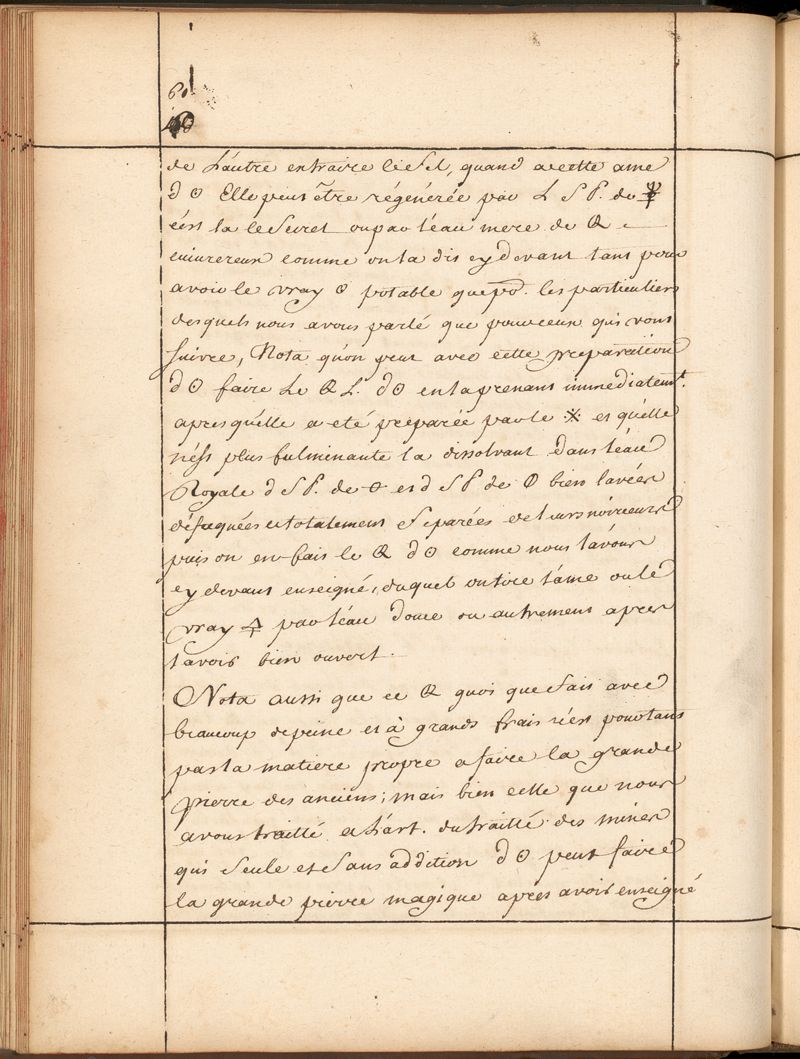 60
de L'autre entraire le Sel, quand a cette ame
d ☉ Elle peut être régénérée par L S P. de
c'est la le Secret ou par l'éau mere de
comme on la dis cy devant tant pour
avoir le vray ☉ potable que pr. les particuliers
desquels nous avons parlé que pour ceux qui vont
suivre, Nota qu'on peut avec cette preparation
d ☉ faire Le L. d ☉ en la prenant immediatemt.
apres qu'elle a eté preparée par le ※ et qu'elle
n'est plus fulminante la dissolvant dans l'éau
Royale d S P. de et d S P de bien lavées
déféquées et totalement Separées de leurs noirceurs
puis on en fais le d ☉ comme nous l'avons
cy devant enseigné, duquel on tire l'ame ou le
vray 🜍 par l'éau douce ou autrement apres
l'avoir bien ouvert.
Nota aussi que ce quoi que fais avec
beaucoup de peine et à grands frais n'est pourtant
pas la matiere propre a faire la grande
pierre des anciens; mais bien celle que nous
avons traitté a L'art. du traitté des mines
qui Seule et Sans addition d ☉ peut faire
la grande pierre magique apres avoir enseigné